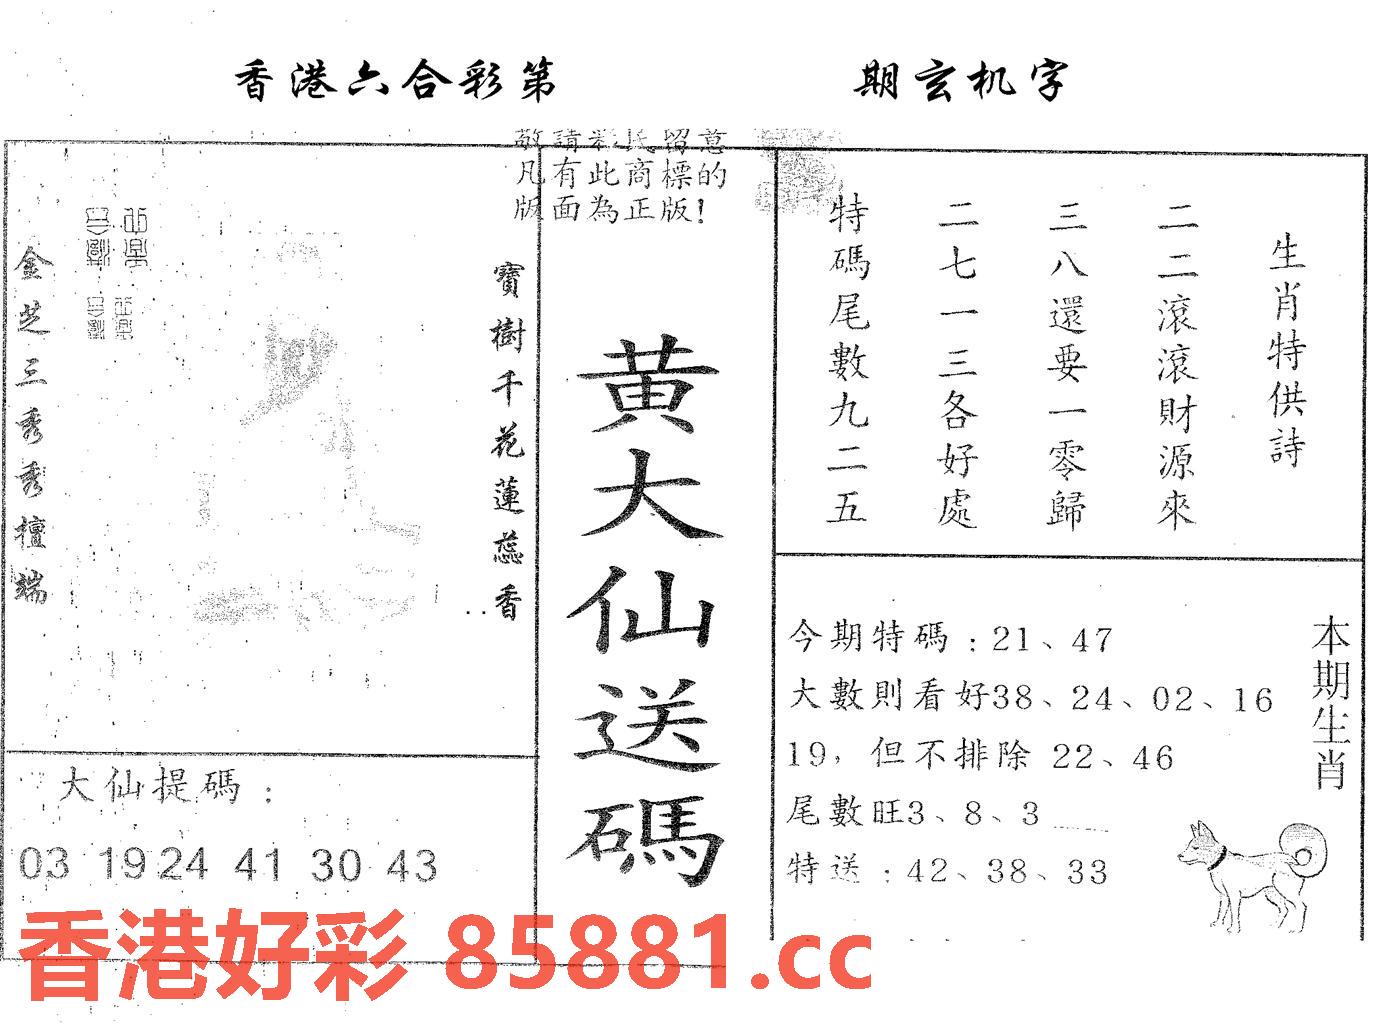 香港六合彩第 期玄机字
敬請彩民留意
凡有此商標的
版面為正版!
生肖特供詩
二二滾滾財源來
三八還要一零歸
二七一三各好處
特碼尾數九二五
寶樹千花蓮蕊香
金芝三秀秀檀端
黄大仙送碼
大仙提碼：
03 19 24 41 30 43
今期特碼：21、47
大數則看好38、24、02、16
19，但不排除 22、46
尾數旺3、8、3
特送：42、38、33
本期生肖
香港好彩 85881.cc